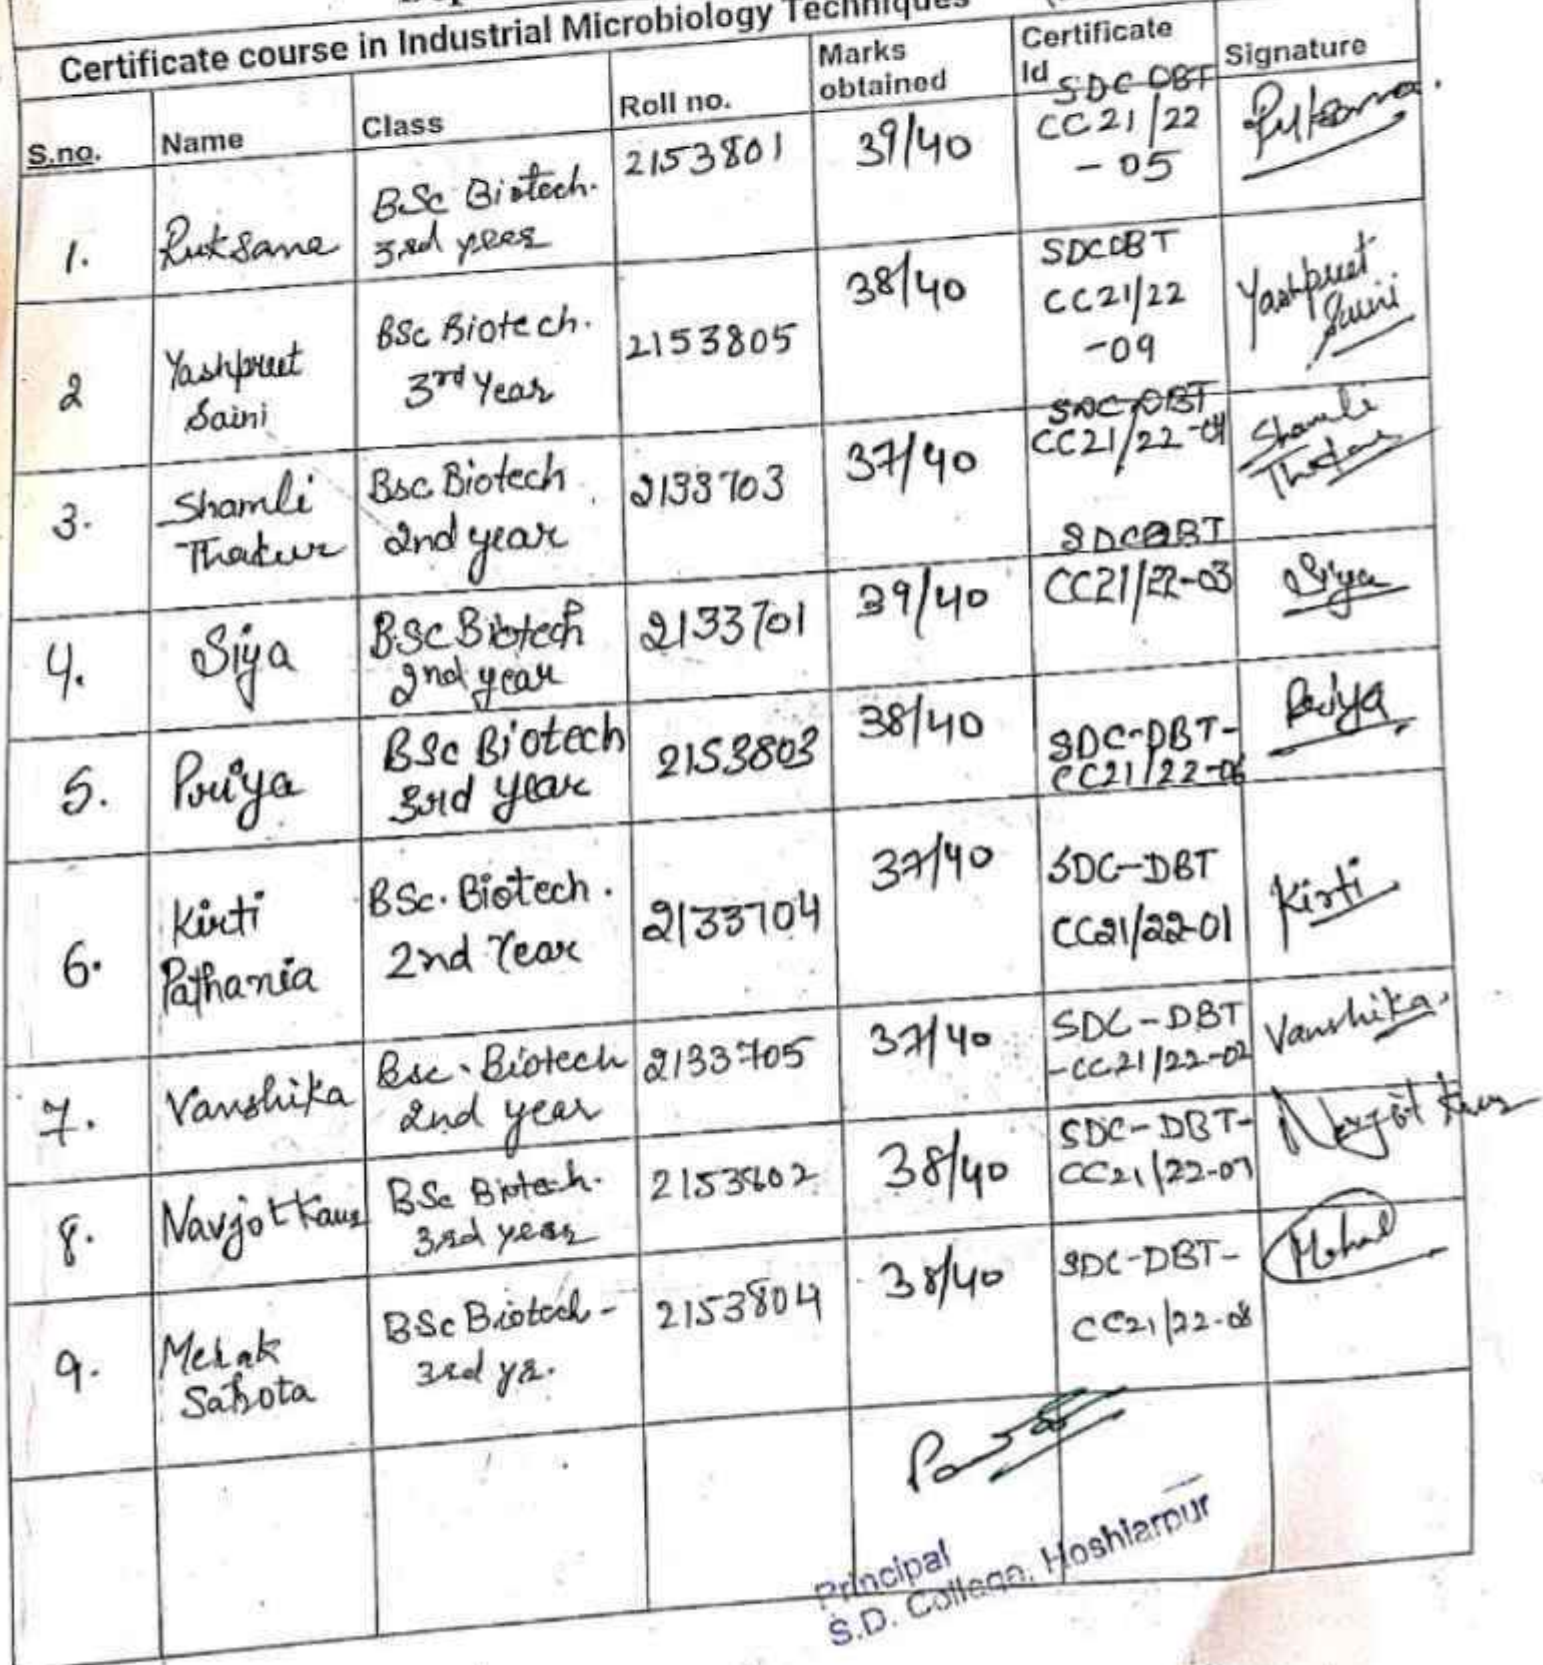 Certificate course in Industrial Microbiology Techniques
S.no. Name Class Roll no. Marks obtained Certificate Id Signature
1. Ruksana BSc Biotech. 3rd year 2153801 39/40 SDC DBT CC21/22 -05 Ruksana.
2 Yashpreet Saini BSc Biotech. 3rd Year 2153805 38/40 SDCDBT CC21/22 -09 Yashpreet Saini
3. Shamli Thakur Bsc Biotech 2nd year 2133703 37/40 SDC DBT CC21/22-04 Shamli Thakur
4. Siya BSc Biotech 2nd year 2133701 39/40 SDCDBT CC21/22-03 Siya
5. Priya BSc Biotech 3rd year 2153803 38/40 SDC-DBT- CC21/22-06 Priya
6. Kirti Pathania BSc. Biotech. 2nd Year 2133704 37/40 SDC-DBT CC21/22-01 Kirti
7. Vanshika Bsc. Biotech 2nd year 2133705 37/40 SDC-DBT -CC21/22-02 Vanshika.
8. Navjot Kaur BSc Biotech. 3rd year 2153802 38/40 SDC-DBT- CC21/22-07 Navjot Kaur
9. Mehak Sahota BSc Biotech- 3rd yr. 2153804 38/40 SDC-DBT- CC21/22-08 Mehak
Principal
S.D. College, Hoshiarpur